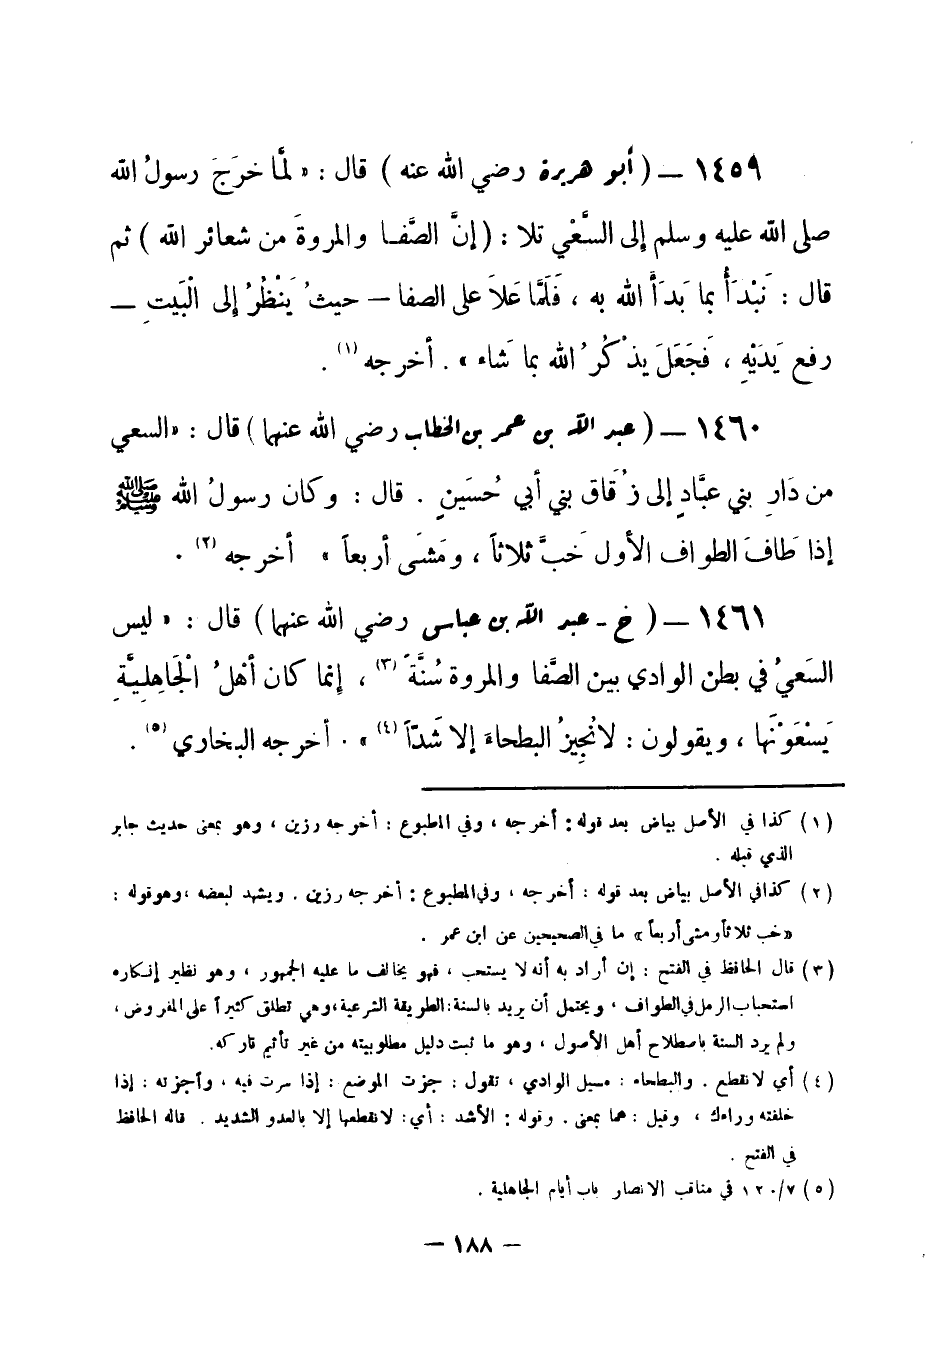 ١٤٥٩ – ( أبو هريرة رضي الله عنه ) قال : « لمَّا خرَجَ رسولُ الله
صلى الله عليه وسلم إلى السَّعْي تلا : ( إنَّ الصَّفـا والمروةَ من شعائر الله ) ثم
قال : نَبْدَأُ بما بَدَأَ الله به ، فَلَمَّا عَلاَ على الصفا – حيثُ يَنْظُرُ إلى الْبَيتِ –
رفع يَدَيْهِ ، فَجَعَلَ يذْكُرُ الله بما شَاء » . أخرجه (١) .
١٤٦٠ – ( عبد الله بن عمر بن الخطاب رضي الله عنهما ) قال : « السعي
من دَارِ بني عبَّادٍ إلى زُقَاق بني أبي حُسَينٍ . قال : وكان رسولُ الله ﷺ
إذا طَافَ الطواف الأول خَبَّ ثلاثاً ، ومَشَى أربعاً » أخرجه (٢) .
١٤٦١ – ( خ - عبد الله بن عباس رضي الله عنهما ) قال : « ليس
السَعيُ في بطن الوادي بين الصَّفا والمروة سُنَّةً (٣) ، إنما كان أهلُ الْجَاهِلِيَّةِ
يَسْعَوْنَها ، ويقولون : لا نُجِيزُ البطحاءَ إلا شَدّاً (٤) » . أخرجه البخاري (٥) .
(١) كذا في الأصل بياض بعد قوله : أخرجه ، وفي المطبوع : أخرجه رزين ، وهو بمعنى حديث جابر
الذي قبله .
(٢) كذا في الأصل بياض بعد قوله : أخرجه ، وفي المطبوع : أخرجه رزين . ويشهد لبعضه ، وهو قوله :
« خب ثلاثاً ومشى أربعاً » ما في الصحيحين عن ابن عمر .
(٣) قال الحافظ في الفتح : إن أراد به أنه لا يستحب ، فهو يخالف ما عليه الجمهور ، وهو نظير إنكاره
استحباب الرمل في الطواف ، ويحتمل أن يريد بالسنة : الطريقة الشرعية ، وهي تطلق كثيراً على المفروض ،
ولم يرد السنة باصطلاح أهل الأصول ، وهو ما ثبت دليل مطلوبيته من غير تأثيم تاركه.
(٤) أي لا نقطع . والبطحاء : مسيل الوادي ، تقول : جزت الموضع : إذا سرت فيه ، وأجزته : إذا
خلفته وراءك ، وقيل : هما بمعنى . وقوله : الأشد : أي : لا نقطعها إلا بالعدو الشديد . قاله الحافظ
في الفتح .
(٥) ١٢٠/٧ في مناقب الانصار باب أيام الجاهلية .
– ١٨٨ –